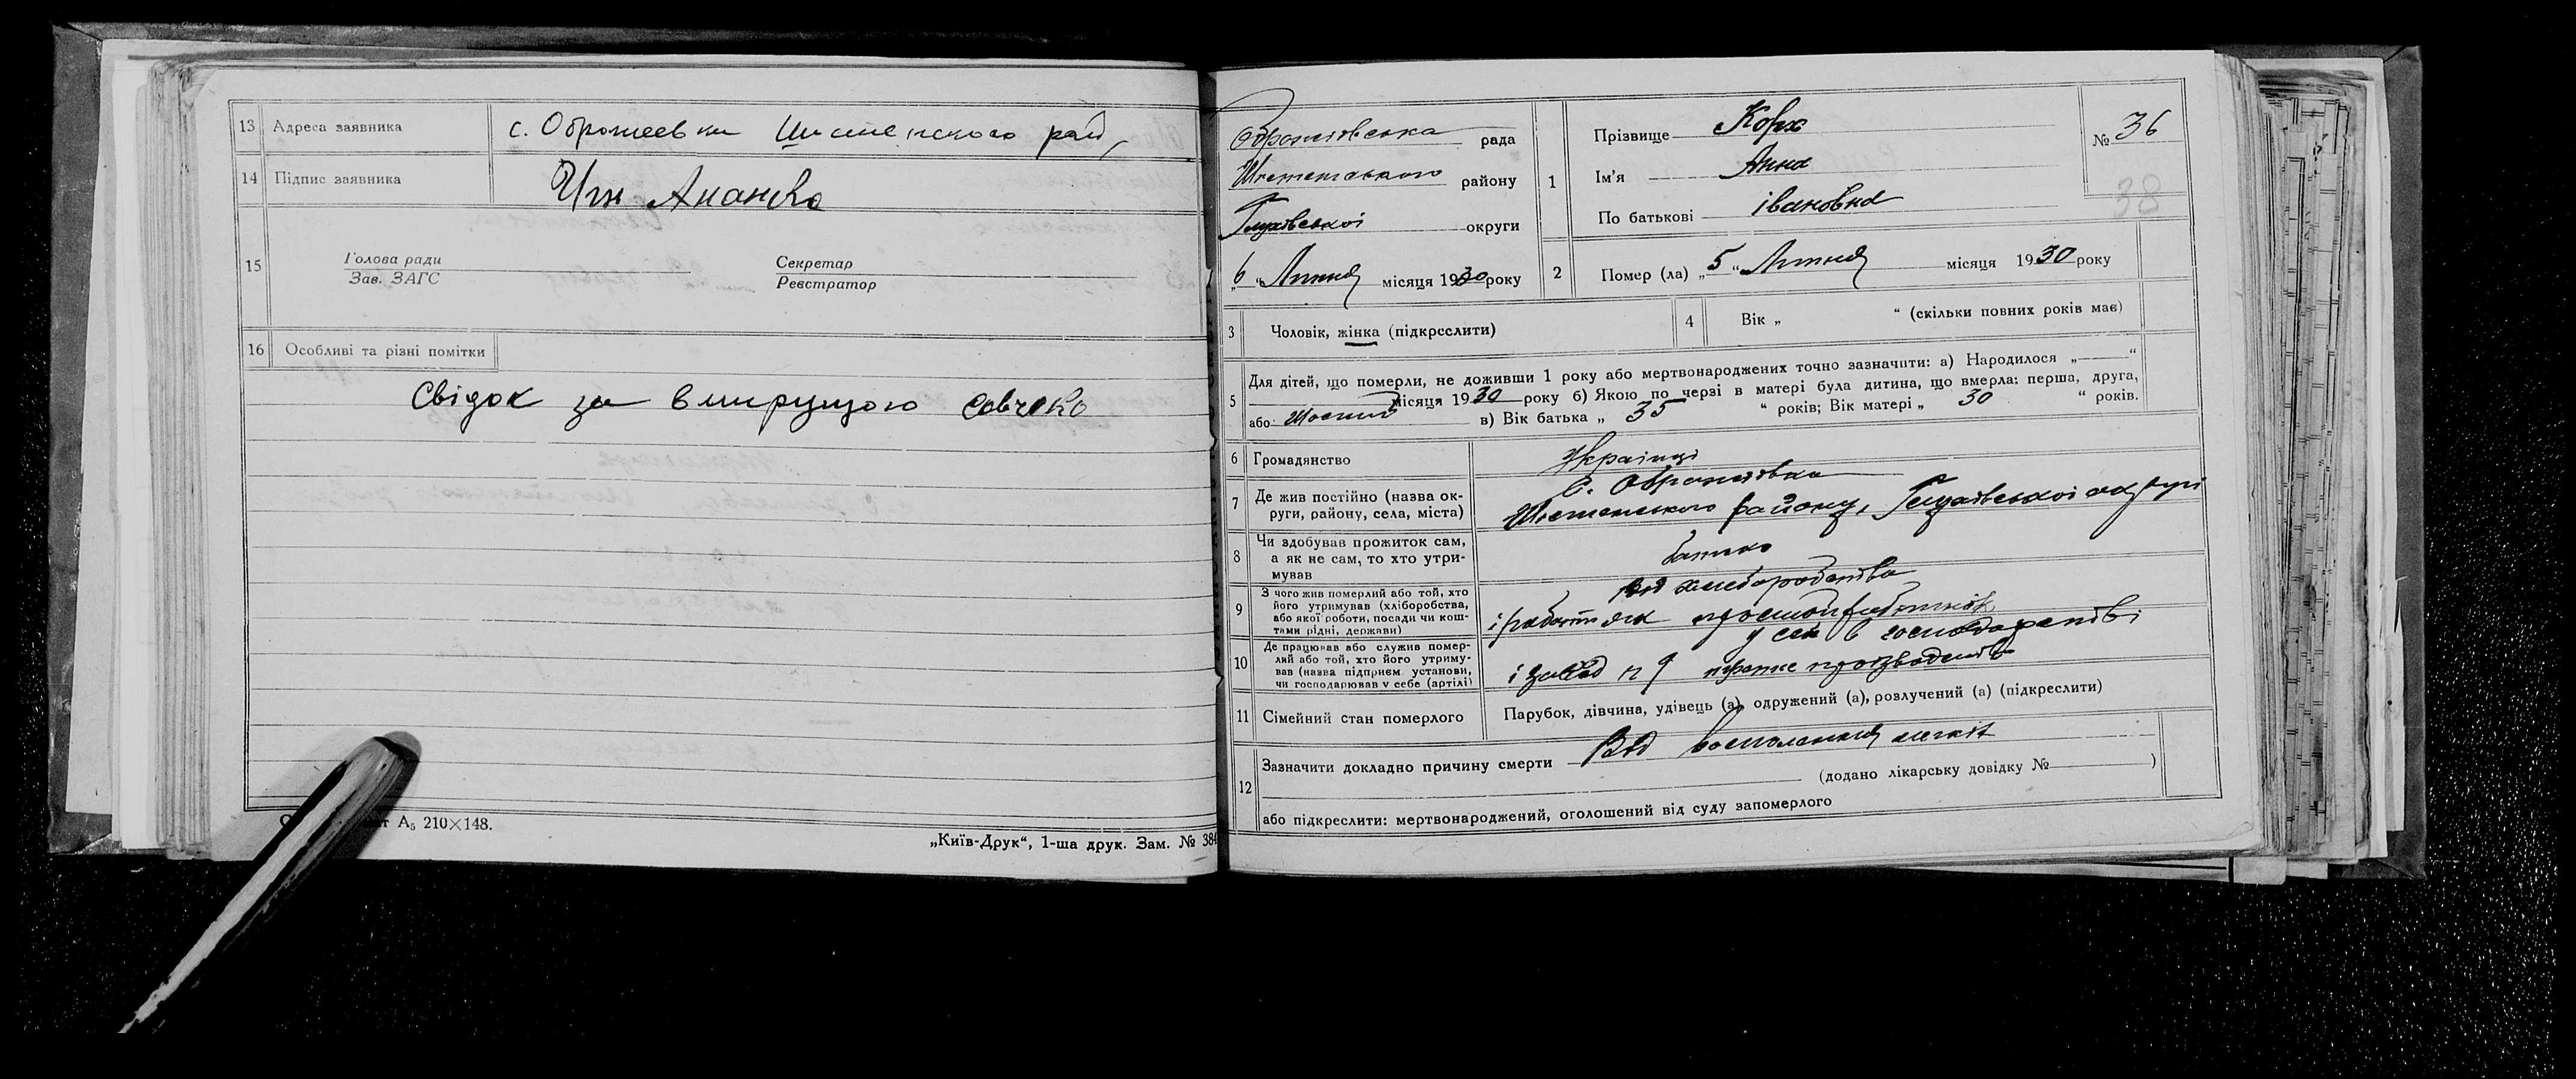 13 Адреса заявника с. Обрамеевки Шостенского рай,
14 Підпис заявника
15 Голова ради Секретар
Зав. ЗАГС Реєстратор
16 Особливі та різні помітки
Свідок за вмирущою Савченко
А₅ 210×148.
„Київ-Друк“, 1-ша друк. Зам. № 384
рада
Шостенського району
Глухівської округи
„6 “ Липня місяця 1930 року
1 Прізвище Корх
Ім'я Анна
По батькові івановна
№ 36
38
2 Помер (ла) „ 5 “ Липня місяця 1930 року
3 Чоловік, жінка (підкреслити)
4 Вік „ “ (скільки повних років має)
5 Для дітей, що померли, не доживши 1 року або мертвонароджених точно зазначити: а) Народилося „ “
місяця 1930 року б) Якою по черзі в матері була дитина, що вмерла: перша, друга,
або в) Вік батька „ 35 “ років; Вік матері „ 30 “ років.
6 Громадянство Українці
7 Де жив постійно (назва округи, району, села, міста) С.
Шостенського району, Глухівської округи
8 Чи здобував прожиток сам, а як не сам, то хто утримував батько
9 З чого жив померлий або той, хто його утримував (хліборобства, або якої роботи, посади чи коштами рідні, держави) від хлеборобства
10 Де працював або служив померлий або той, хто його утримував (назва підприєм. установи, чи господарював у себе (артілі) у сей в господарстві
і завод n 9
11 Сімейний стан померлого Парубок, дівчина, удівець (а), одружений (а), розлучений (а) (підкреслити)
12 Зазначити докладно причину смерти Від воспаления легкіх
(додано лікарську довідку № )
або підкреслити: мертвонароджений, оголошений від суду запомерлого